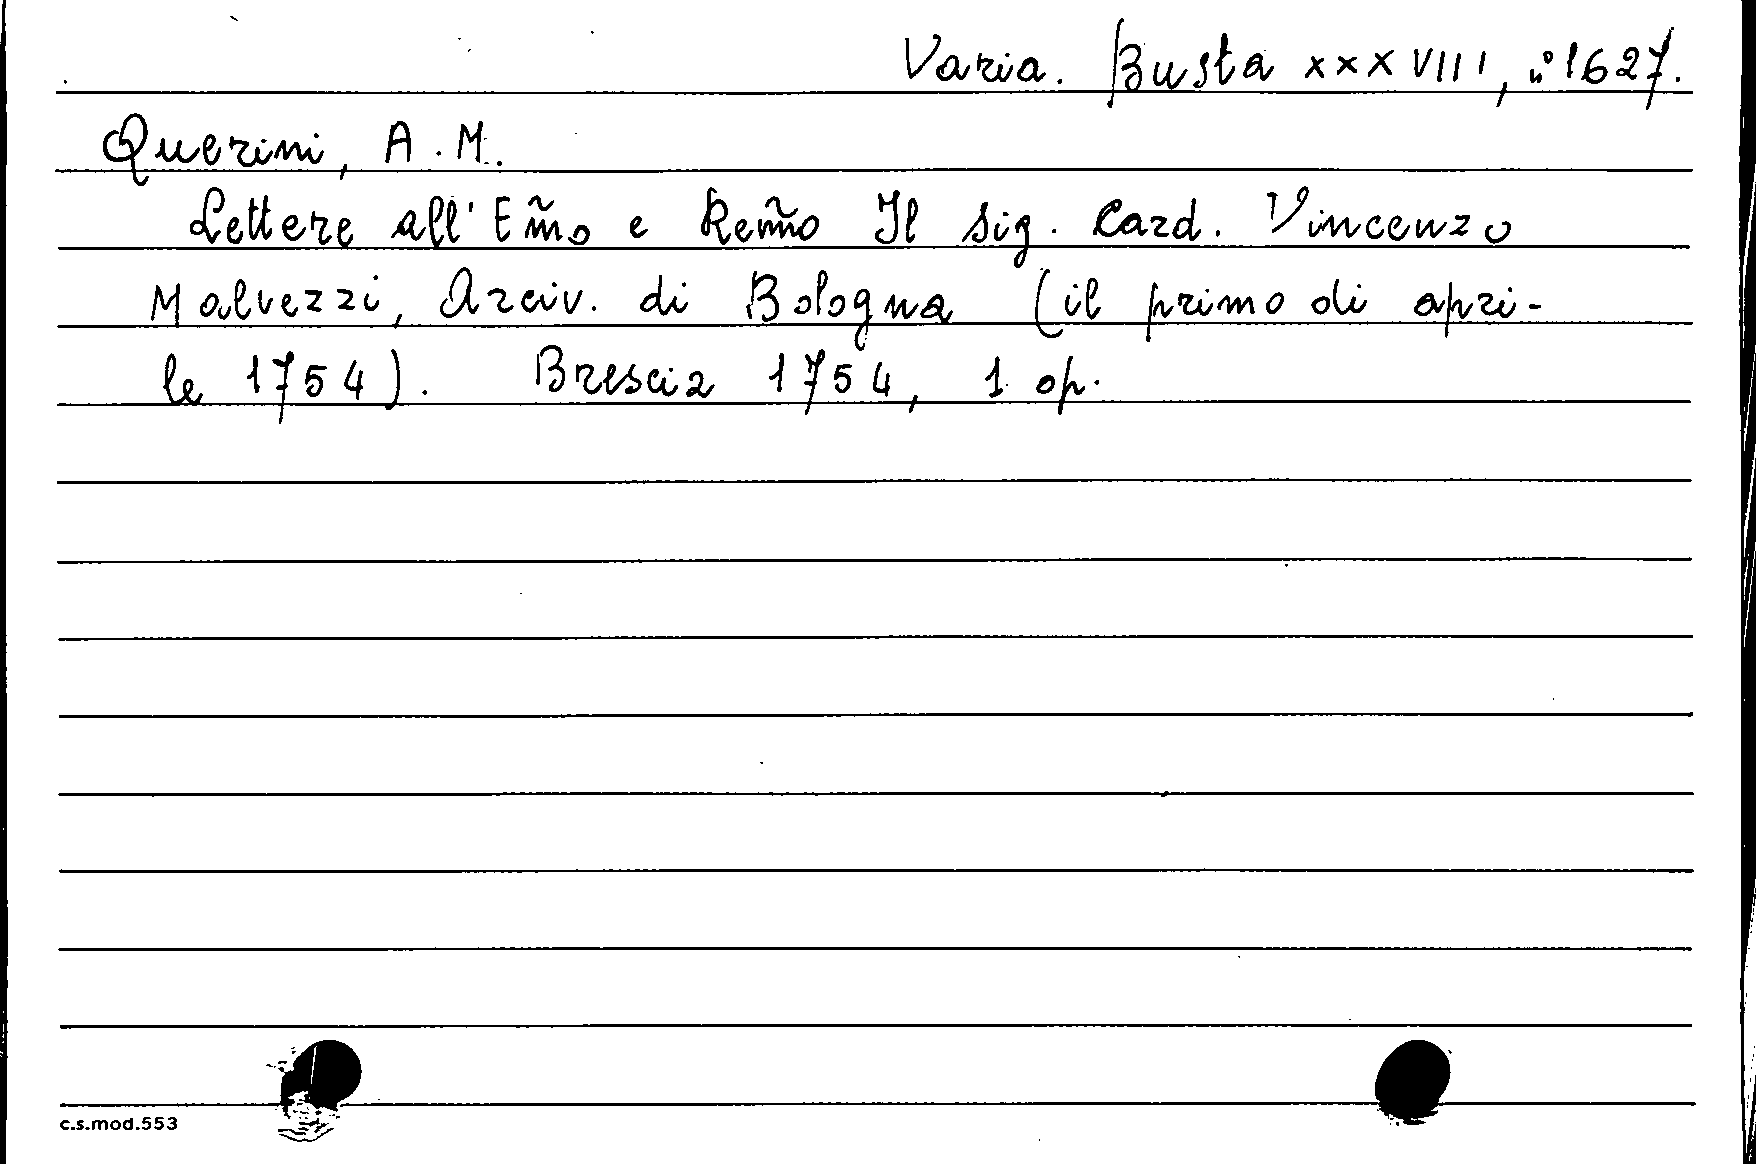 Varia. Busta XXXVIII, n° 1627.
Querini, A. M.
Lettere all' Em̃o e Rem̃o Il sig. Card. Vincenzo
Malvezzi, Arciv. di Bologna (il primo di apri-
le 1754). Brescia 1754, 1 op.
c.s.mod.553